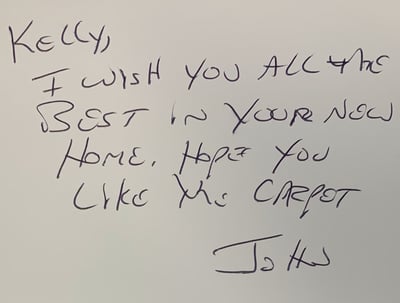 Kelly,
I WISH YOU ALL THE
BEST IN YOUR NEW
HOME. HOPE YOU
LIKE THE CARPET
JOHN